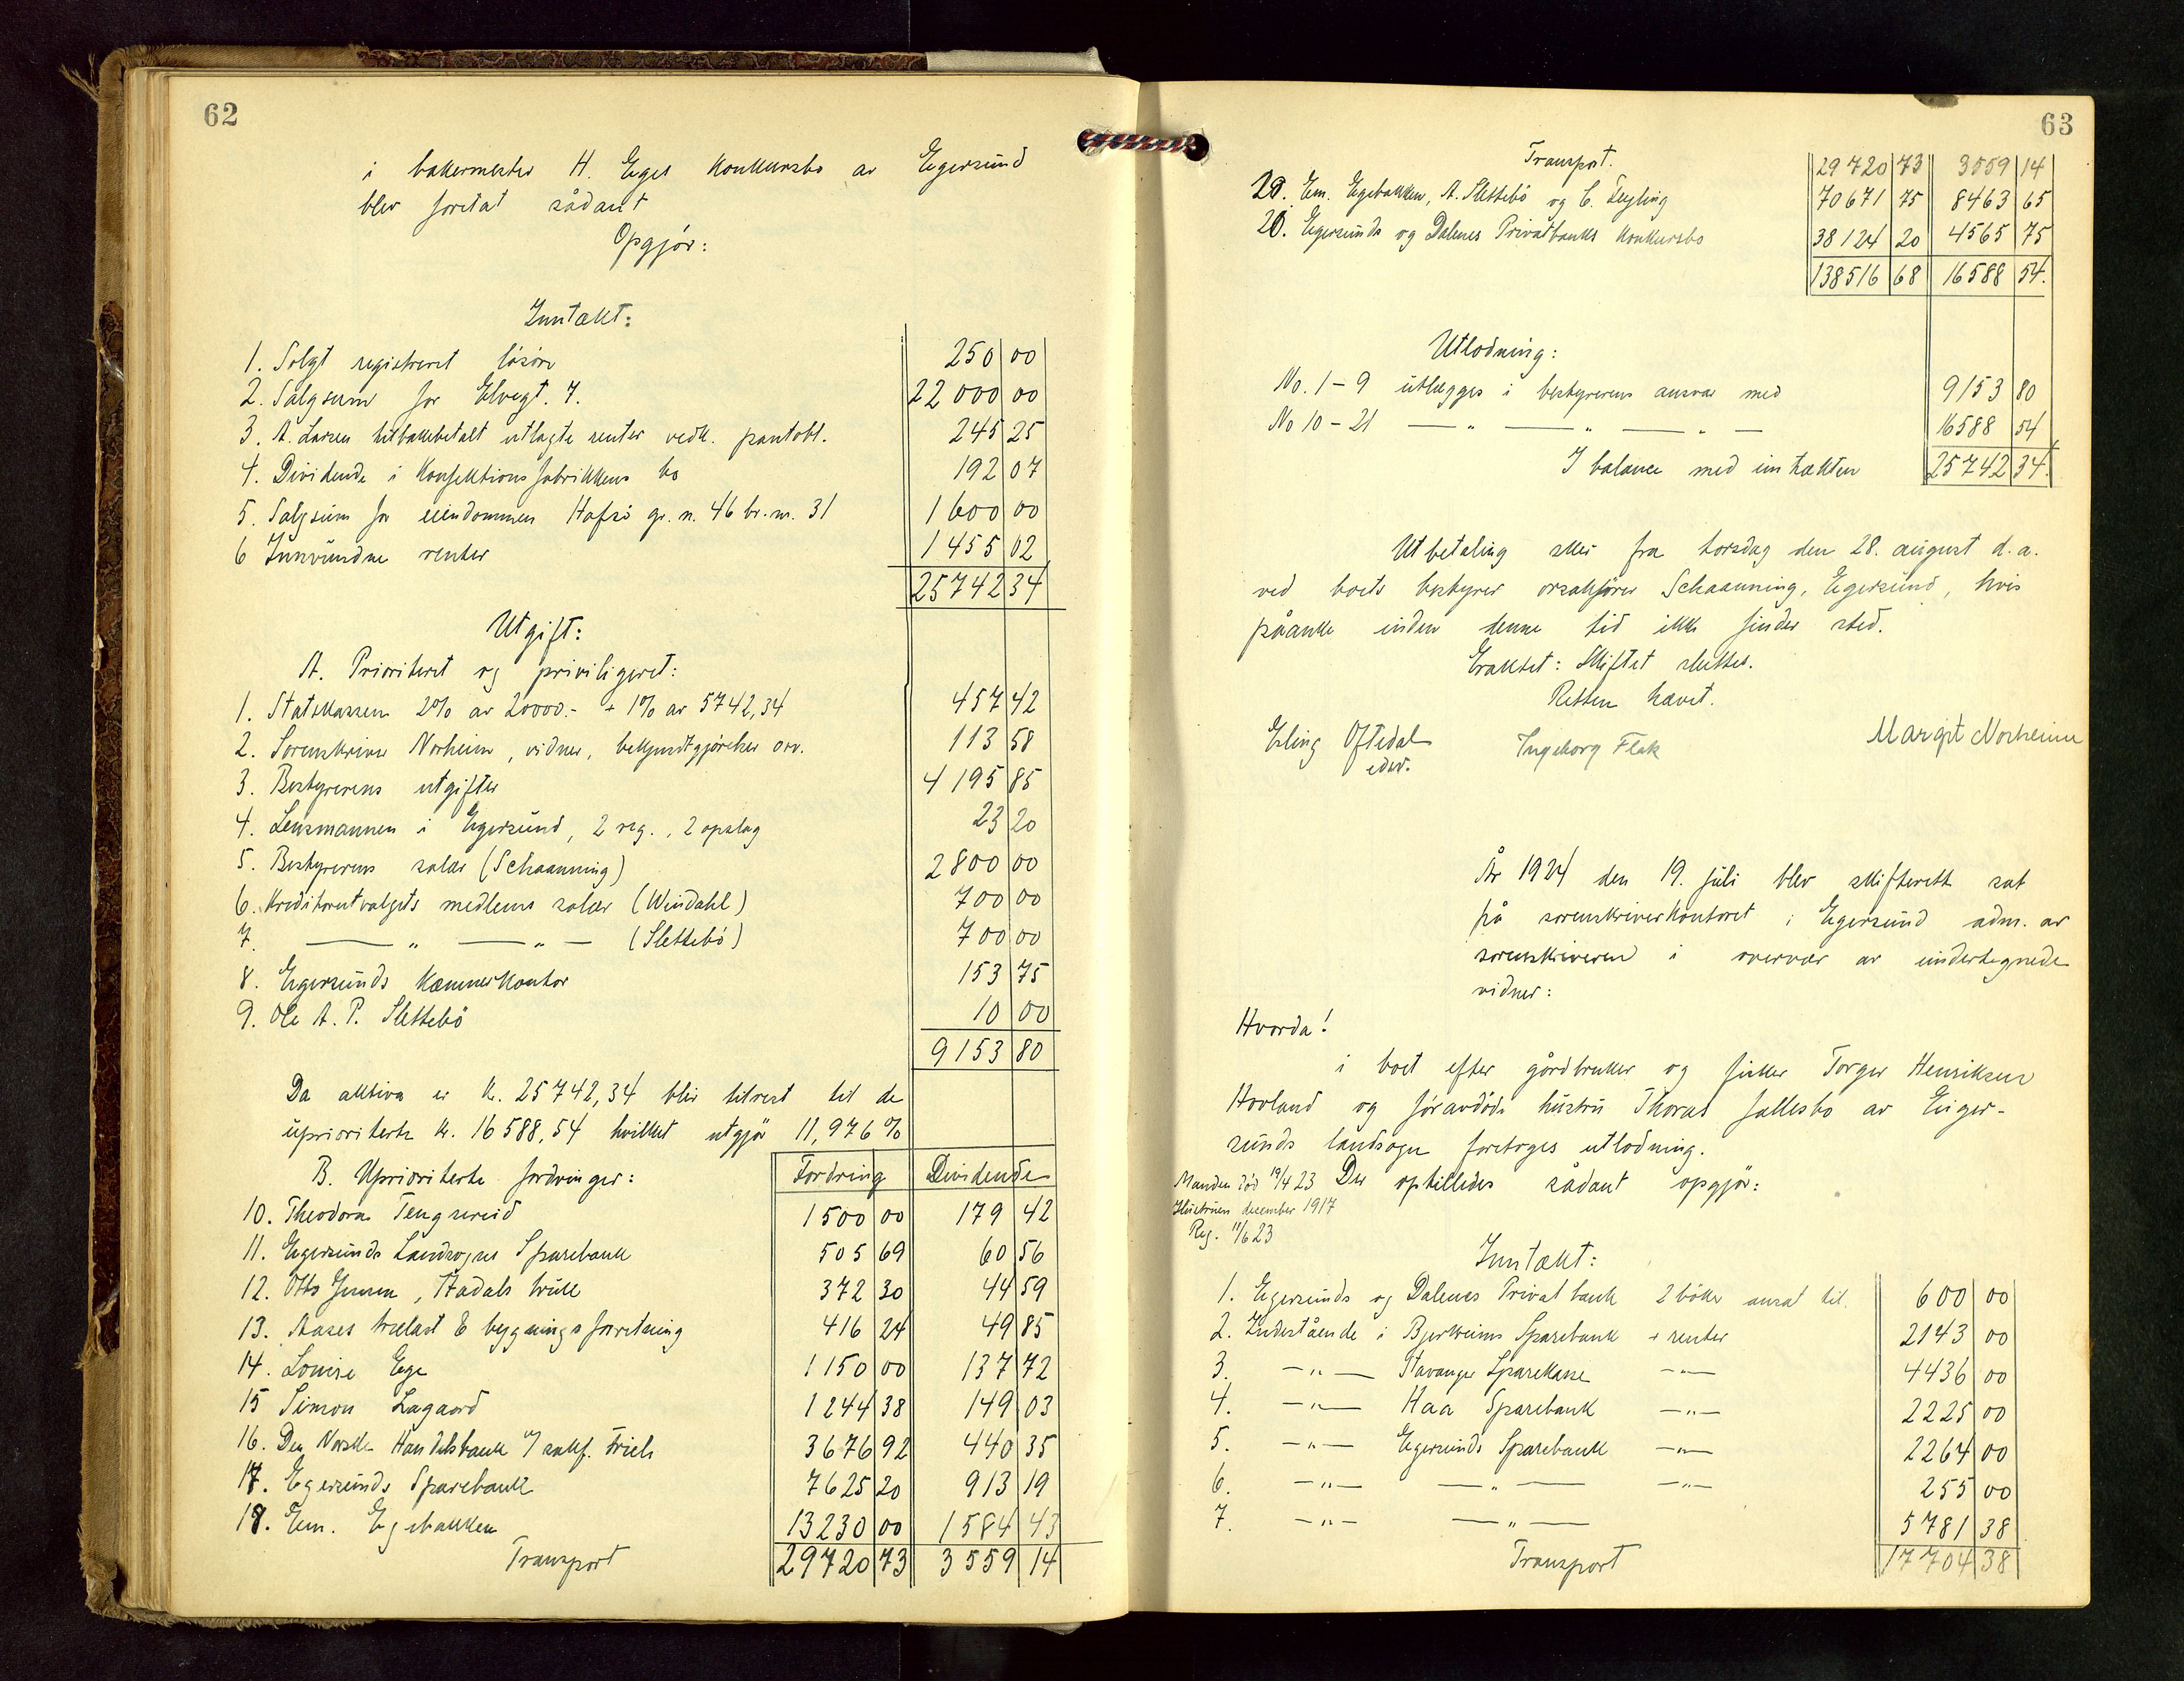 62
i bakermester H. Eges Konkursbo av Egersund
blev foretat sådant
Opgjör:
Inntækt:
1. Solgt registreret lösöre 250 00
2. Salgssum for Elvegt. 7. 22 000 00
3. A. Larsen tilbakebetalt utlagte renter vedk. pantobl. 245 25
4. Dividende i Konfektionsfabrikkens bo 192 07
5. Salgssum for eiendommen Hafsö gr. n. 46 br. nr. 31 1 600 00
6 Innvundne renter 1 455 02
25742 34
Utgift:
A. Prioriteret og priviligeret:
1. Statskassen 2% av 20000.- + 1% av 5742,34 457 42
2. Sorenskriver Norheim, vidner, bekjendtgjörelser osv. 113 58
3. Bestyrerens utgifter 4 195 85
4. Lensmannen i Egersund, 2 reg., 2 opslag 23 20
5. Bestyrerens salær (Schaanning) 2 800 00
6. Kreditorutvalgets medlems salær (Windahl) 700 00
7. — „ — „ — (Slettebö) 700 00
8. Egersunds Kæmnerkontor 153 75
9. Ole A. P. Slettebö 10 00
9153 80
Da aktiva er kr. 25742,34 blir tilrest til de
uprioriterte kr. 16588,54 hvilket utgjör 11,976%
B. Uprioriterte fordringer: Fordring Dividende
10. Theodora Tengsereid 1500 00 179 42
11. Egersunds Landsogns Sparebank 505 69 60 56
12. Otto Jensen, Stadals bruk 372 30 44 59
13. Aases trælast & bygningsforretning 416 24 49 85
14. Louise Ege 1150 00 137 72
15 Simon Lagaard 1244 38 149 03
16. Den Norske Handelsbank v/ sakf. Friele 3676 92 440 35
17. Egersunds Sparebank 7625 20 913 19
18. Em. Egebakken 13230 00 1584 43
Transport 29720 73 3559 14
63
Transport. 29720 73 3559 14
20. Em. Egebakken, A. Slettebö og C. Feyling 70671 75 8463 65
21. Egersunds og Dalenes Privatbanks Konkursbo 38124 20 4565 75
138516 68 16588 54.
Utlodning:
No. 1-9 utlægges i bestyrerens ansvar med 9153 80
No 10-21 — „ — „ — „ — 16588 54
I balance med inntækten 25742 34.
Utbetaling sker fra torsdag den 28. august d.a.
ved boets bestyrer orsakförer Schaanning, Egersund, hvis
påanke inden denne tid ikke finder sted.
Eraktet: Skiftet sluttes.
Retten hævet.
Erling Oftedal Ingeborg Flak Margit Norheim
edsv.
År 1924 den 19. juli blev skifterett sat
på sorenskriverkontoret i Egersund adm. av
sorenskriveren i overvær av undertegnede
vidner:
Hvorda!
i boet efter gårdbruker og fisker Torger Henriksen
Hovland og foravdöde hustru Thoras fællesbo av Eiger-
sunds landsogn foretoges utlodning.
Manden död 19/4 23 Der opstilledes sådant opgjör:
Hustruen december 1917
Reg. 11/6 23
Inntækt:
1. Egersunds og Dalenes Privatbank 2 böker ansat til. 600 00
2. Indestående i Bjerkreims Sparebank + renter 2143 00
3. — „ — Stavanger Sparekasse — „ — 4436 00
4. — „ — Haa Sparebank — „ — 2225 00
5. — „ — Egersunds Sparebank — „ — 2264 00
6. — „ — — „ — — „ — 255 00
7. — „ — — „ — 5781 38
Transport 17704 38